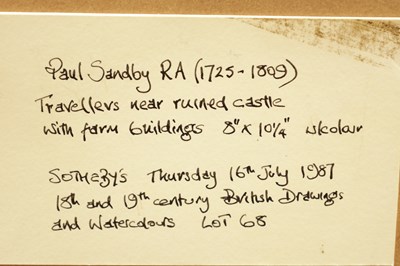 Paul Sandby RA (1725-1809)
Travellers near ruined castle
with farm buildings 8" x 10¼" w/colour
SOTHEBY'S Thursday 16th July 1987
18th and 19th century British Drawings
and Watercolours LOT 68